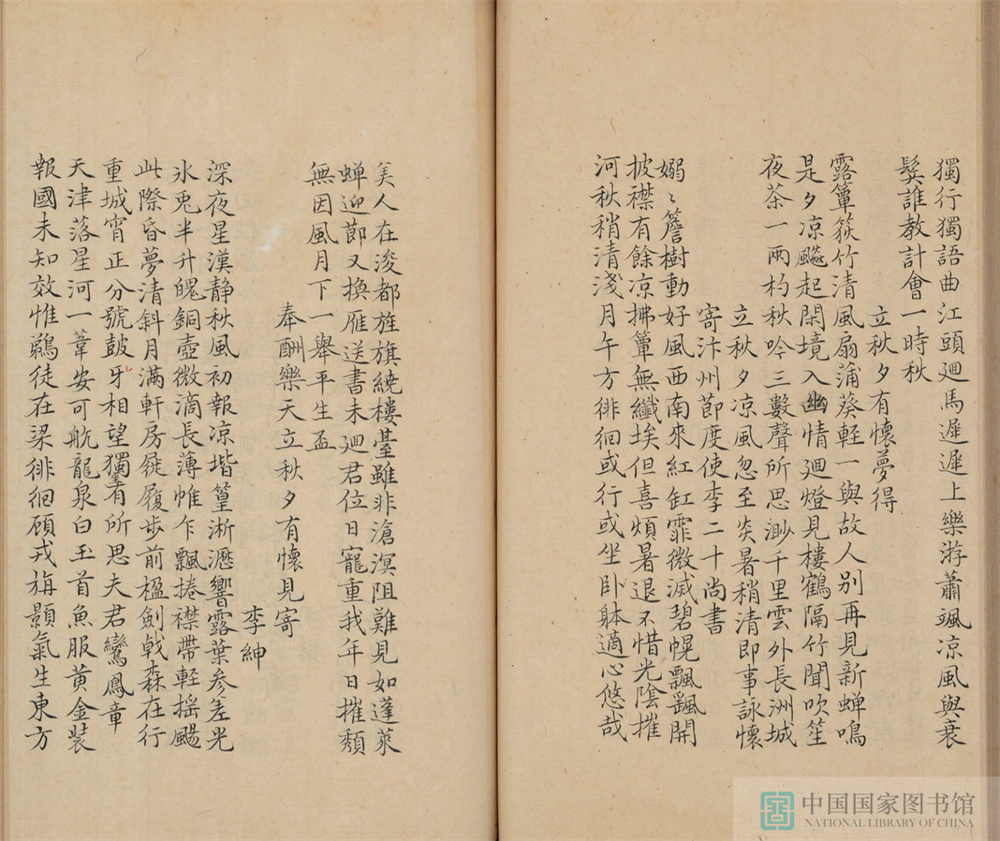 獨行獨語曲江頭迴馬遲遲上樂游蕭颯凉風與衰
鬓誰教計會一時秋
立秋夕有懷夢得
露簟荻竹清風扇蒲葵輕一與故人別再見新蝉鳴
是夕凉飈起閑境入幽情迴燈見樓鶴隔竹聞吹笙
夜茶一兩杓秋吟三數聲所思渺千里雲外長洲城
立秋夕凉風忽至炎暑稍清即事詠懷
寄汴州節度使李二十尚書
嫋〻簷樹動好風西南來紅缸霏微滅碧幌飄飖開
披襟有餘凉拂簟無纖埃但喜煩暑退不惜光陰摧
河秋稍清淺月午方徘徊或行或坐卧躰適心悠哉
美人在浚都旌旗繞樓臺雖非滄溟阻難見如蓬萊
蝉迎節又換雁送書未迴君位日寵重我年日摧頹
無因風月下一舉平生盃
奉酬樂天立秋夕有懷見寄
李紳
深夜星漢静秋風初報凉堦篁淅瀝響露葉參差光
氷兎半升魄銅壺微滴長薄帷乍飄捲襟帶輕揺颺
此際昏夢清斜月滿軒房屣履步前楹劍戟森在行
重城宵正分號鼓牙相望獨有所思夫君鸞鳳章
天津落星河一葦安可航龍泉白玉首魚服黄金裝
報國未知效惟鵜徒在梁徘徊顧戎旃顥氣生東方
中国国家图书馆
NATIONAL LIBRARY OF CHINA